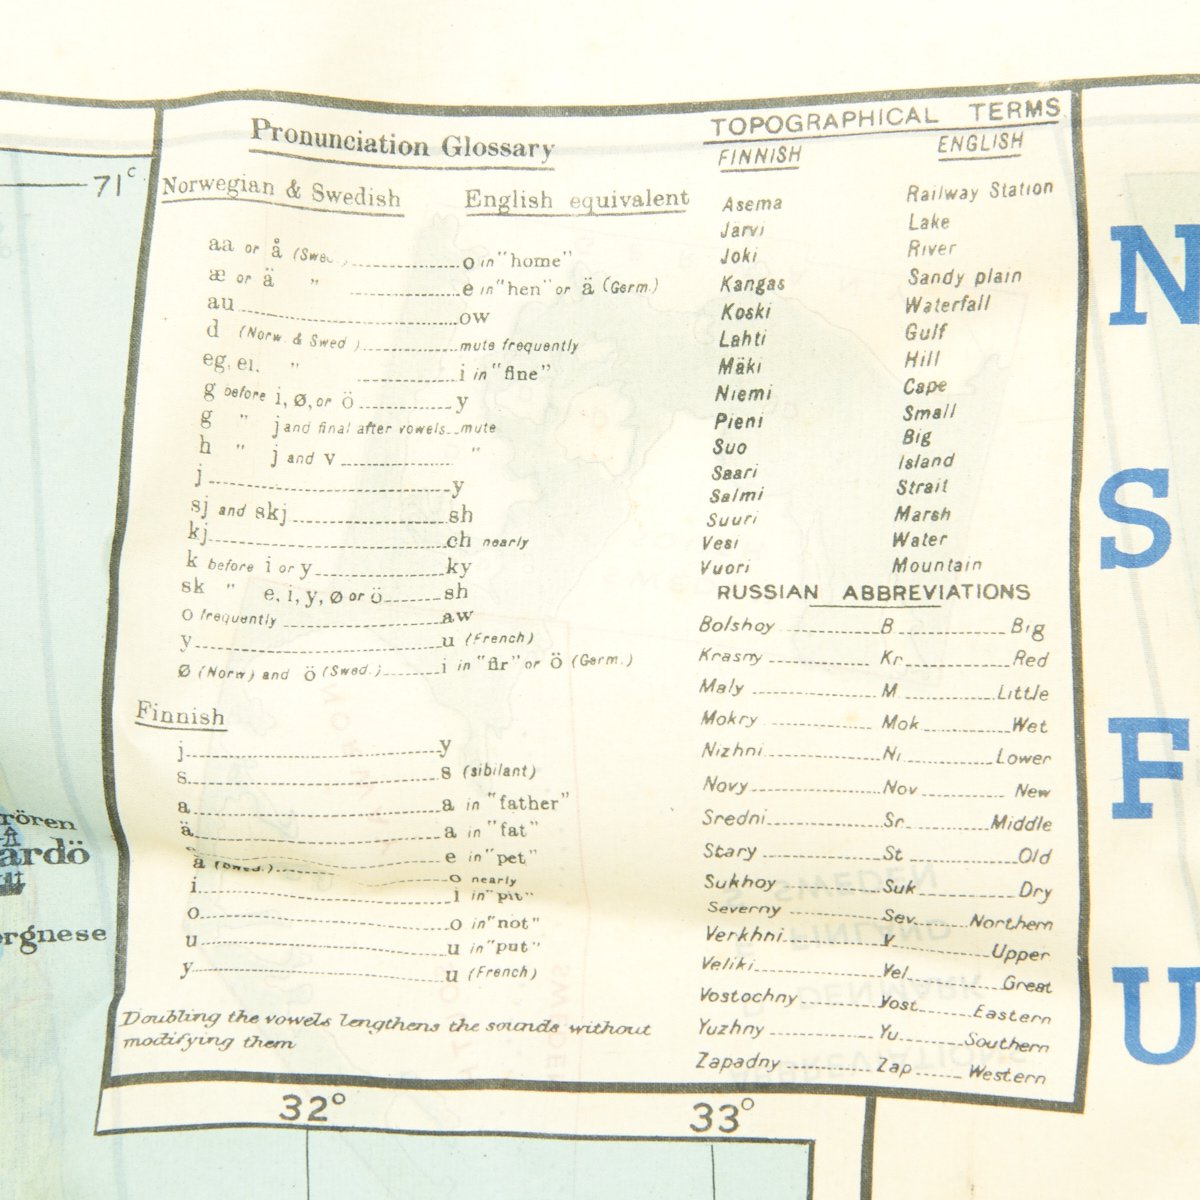 Pronunciation Glossary
Norwegian & Swedish English equivalent
aa or å (Swed.) o in "home"
æ or ä " e in "hen" or ä (Germ.)
au ow
d (Norw. & Swed ) mute frequently
eg, ei. " i in "fine"
g before i, ø, or ö y
g " j and final after vowels mute
h " j and v "
j y
sj and skj sh
kj ch nearly
k before i or y ky
sk " e, i, y, ø or ö sh
o frequently aw
y u (French)
ø (Norw) and ö (Swed.) i in "fir" or ö (Germ.)
Finnish
j y
s s (sibilant)
a a in "father"
ä a in "fat"
e in "pet"
å (Swed.) o nearly
i i in "pit"
o o in "not"
u u in "put"
y u (French)
Doubling the vowels lengthens the sounds without
modifying them
TOPOGRAPHICAL TERMS
FINNISH ENGLISH
Asema Railway Station
Jarvi Lake
Joki River
Kangas Sandy plain
Koski Waterfall
Lahti Gulf
Mäki Hill
Niemi Cape
Pieni Small
Suo Big
Saari Island
Salmi Strait
Suuri Marsh
Vesi Water
Vuori Mountain
RUSSIAN ABBREVIATIONS
Bolshoy B Big
Krasny Kr Red
Maly M Little
Mokry Mok Wet
Nizhni Ni Lower
Novy Nov New
Sredni Sr Middle
Stary St Old
Sukhoy Suk Dry
Severny Sev Northern
Verkhni V Upper
Veliki Vel Great
Vostochny Vost Eastern
Yuzhny Yu Southern
Zapadny Zap Western
71°
rören
ardö
orgnese
32° 33°
N
S
F
U